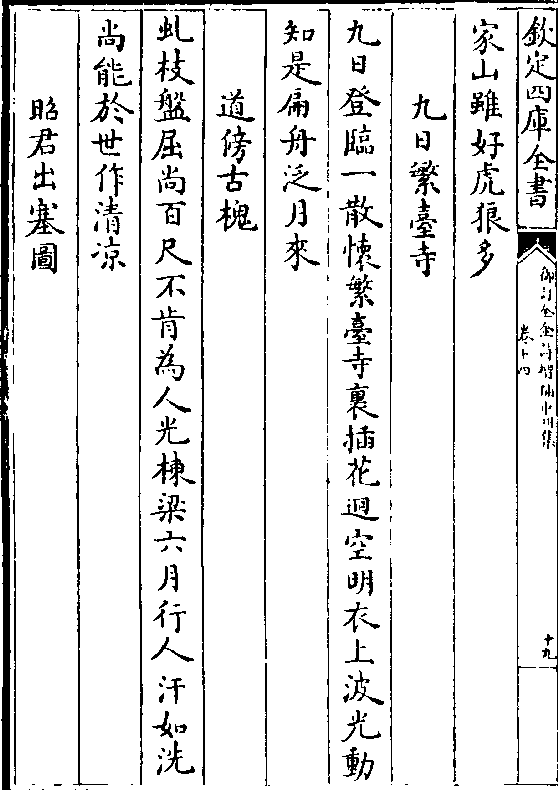 欽定四庫全書
御訂全金詩増補中州集
卷十四
十九
家山雖好虎狼多
九日繁臺寺
九日登臨一散懷繁臺寺裏插花迴空明衣上波光動
知是扁舟泛月來
道傍古槐
虬枝盤屈尚百尺不肯為人充棟梁六月行人汗如洗
尚能於世作清凉
昭君出塞圖